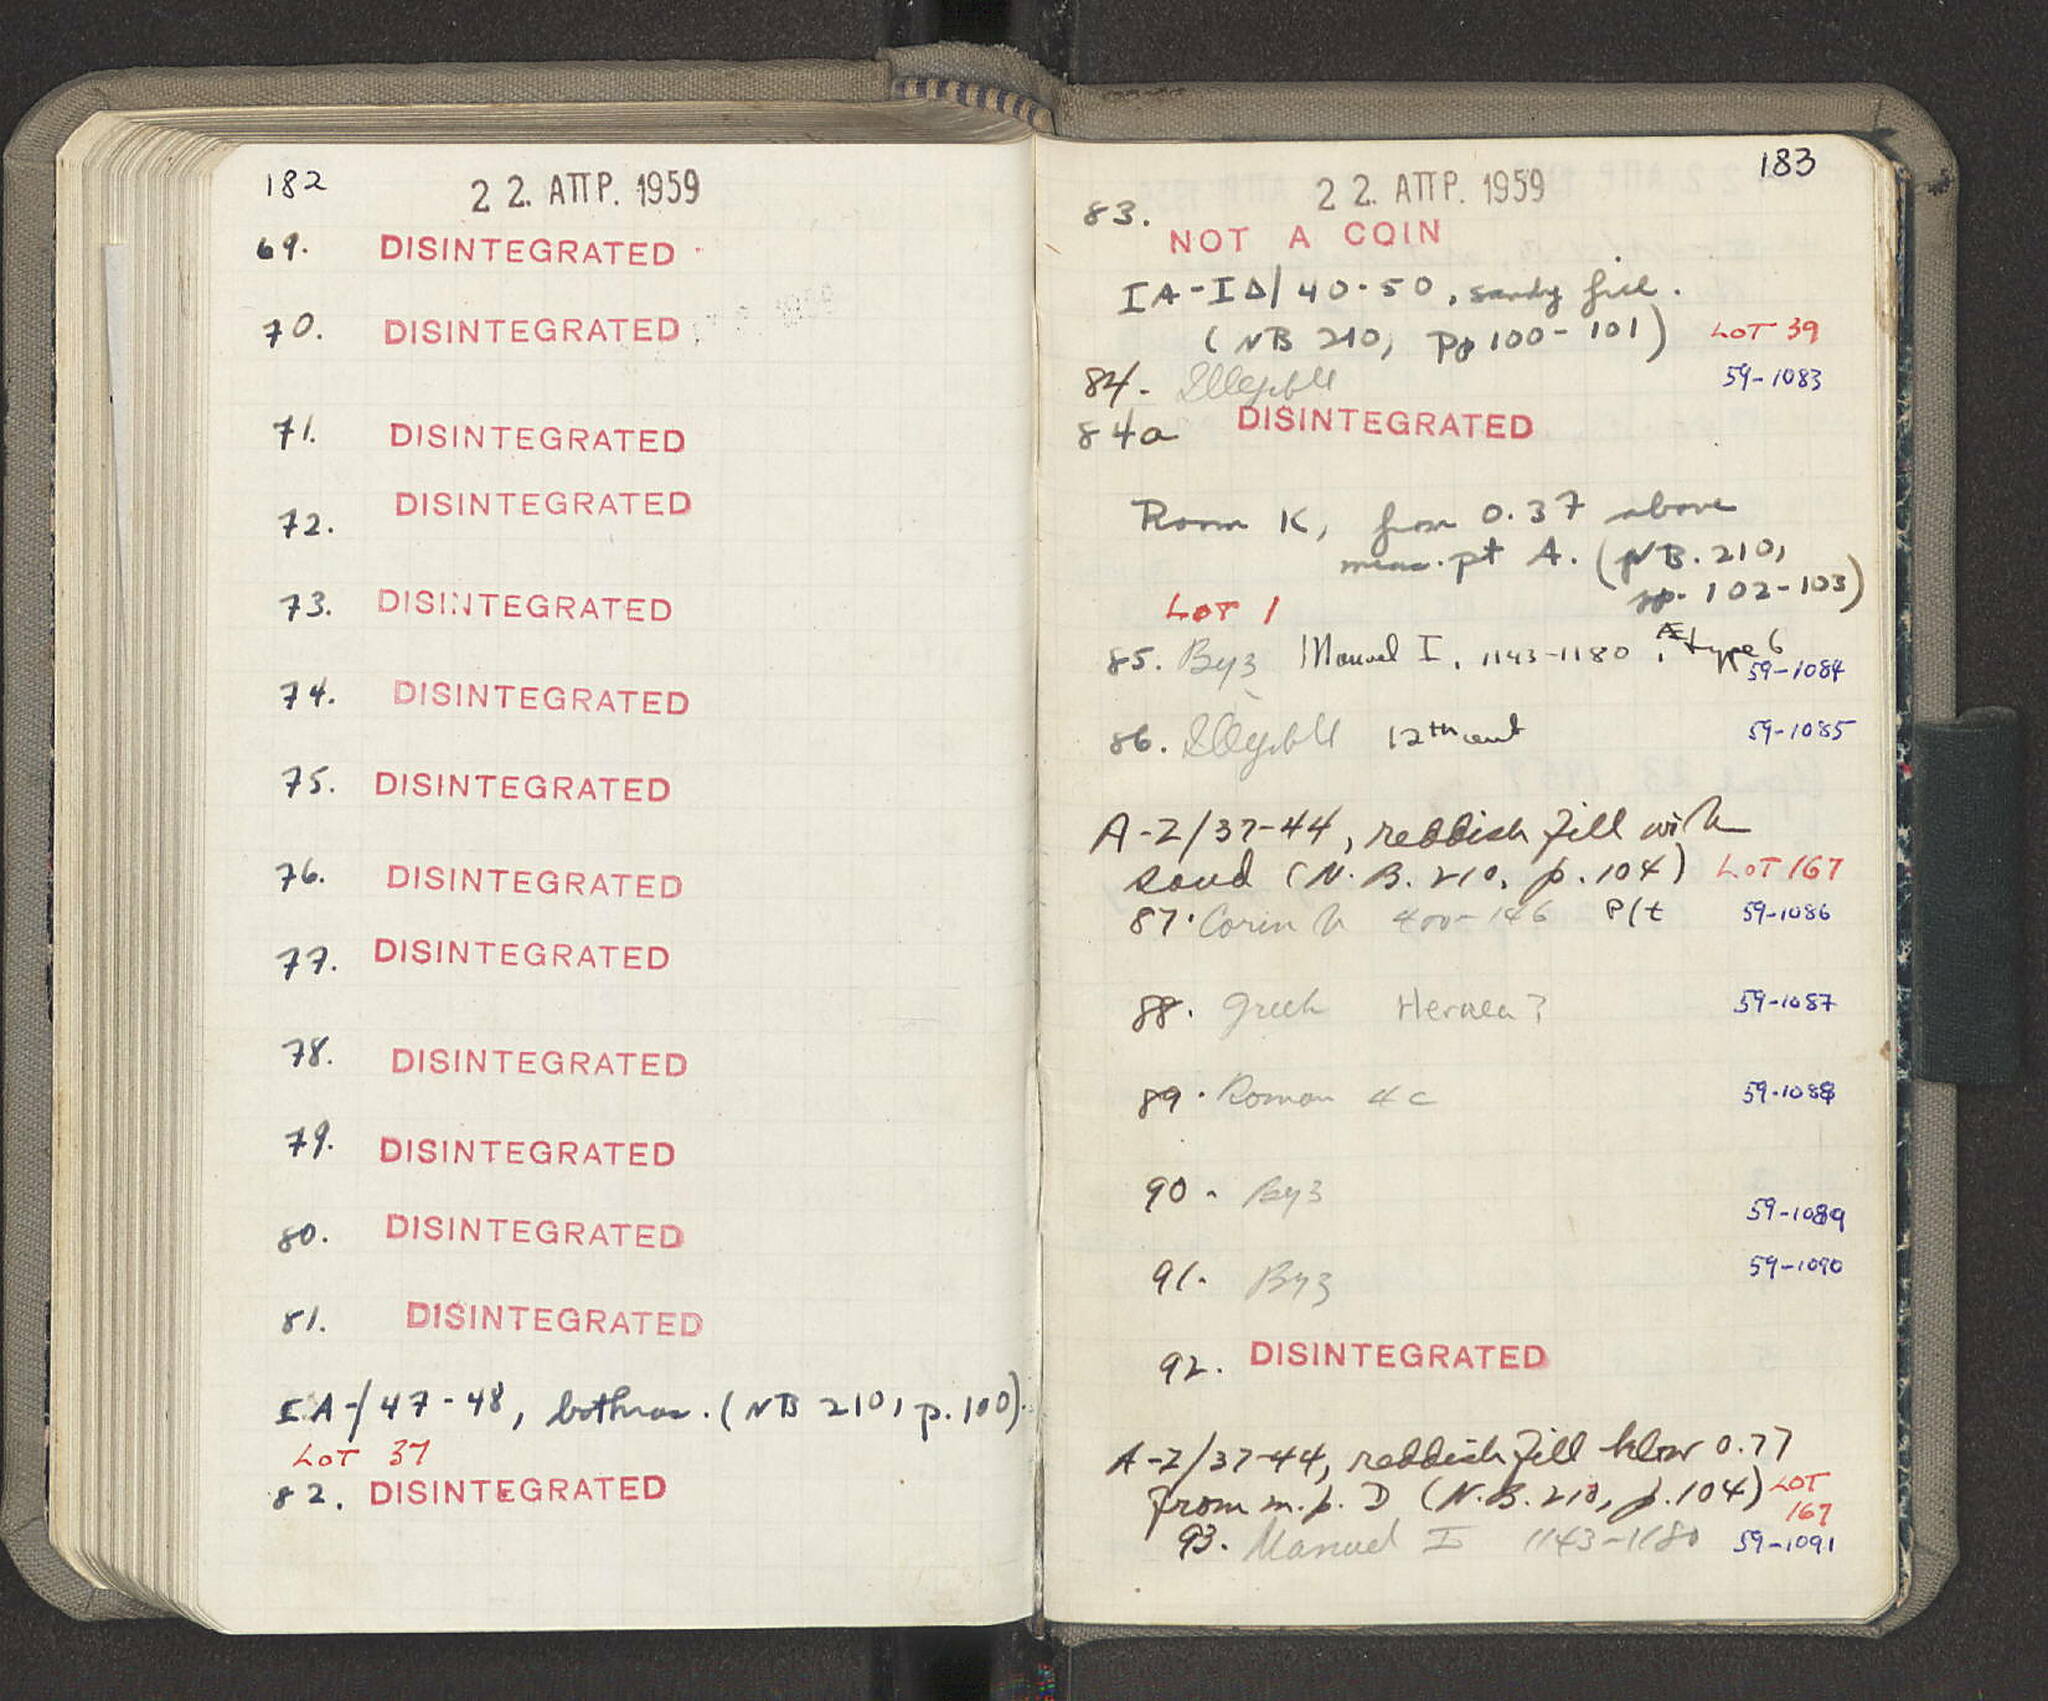 182
22. ΑΠΡ. 1959
69. DISINTEGRATED
70. DISINTEGRATED
71. DISINTEGRATED
72. DISINTEGRATED
73. DISINTEGRATED
74. DISINTEGRATED
75. DISINTEGRATED
76. DISINTEGRATED
77. DISINTEGRATED
78. DISINTEGRATED
79. DISINTEGRATED
80. DISINTEGRATED
81. DISINTEGRATED
IA-/47-48, bothros. (NB 210, p. 100).
LOT 37
82. DISINTEGRATED
183
22. ΑΠΡ. 1959
83.
NOT A COIN
IA-IΔ/40-50, sandy fill.
(NB 210, pp 100-101) LOT 39
84. Illegible 59-1083
84a DISINTEGRATED
Room K, from 0.37 above
meas. pt A. (NB. 210,
pp. 102-103)
LOT 1
85. Byz Manuel I, 1143-1180, Æ type 6
59-1084
86. Illegible 12th cent 59-1085
A-Z/37-44, reddish fill with
sand (N.B. 210, p. 104) LOT 167
87. Corinth 400-146 P/t 59-1086
88. Greek 59-1087
89. Roman 4c 59-1088
90. Byz 59-1089
91. Byz 59-1090
92. DISINTEGRATED
A-Z/37-44, reddish fill below 0.77
from m.p. D (N.B. 210, p. 104) LOT
167
93. Manuel I 1143-1180 59-1091